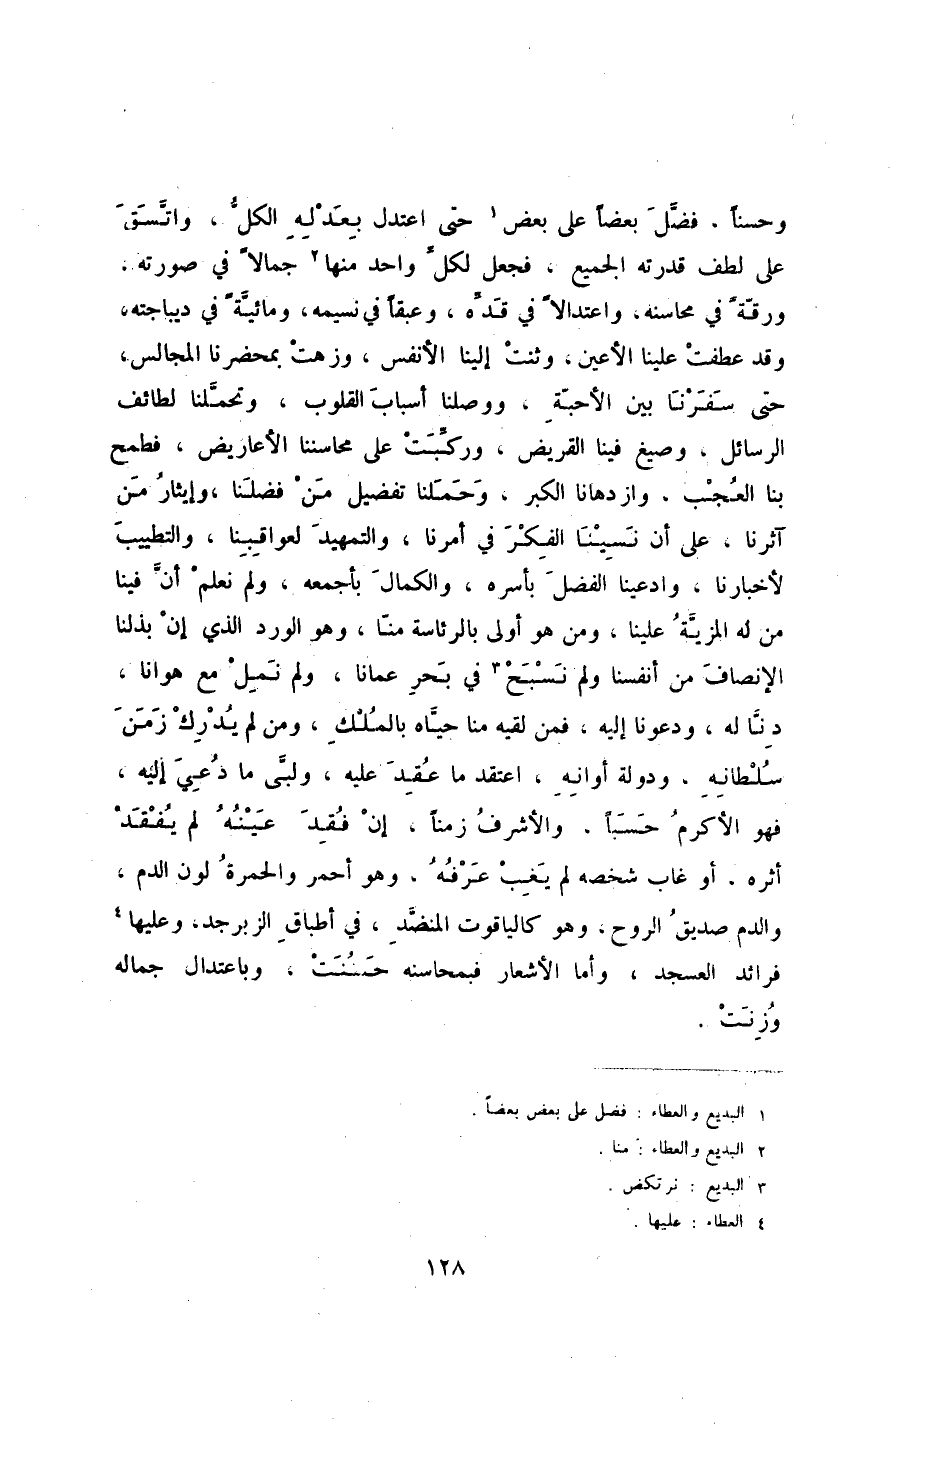 وحسناً . فضَّلَ بعضاً على بعض١ حتّى اعتدل بِعَدْلِهِ الكلُّ ، واتَّسَقَ
على لطف قدرته الجميع ، فجعل لكلّ واحد منها٢ جمالاً في صورته .
ورقّةً في محاسنه، واعتدالاً في قدِّه ، وعبقاً في نسيمه، ومائيَّةً في ديباجته،
وقد عطفتْ علينا الأعين، وثنتْ إلينا الأنفس ، وزهتْ بمحضرنا المجالس،
حتّى سَفَرْنَا بين الأحبّةِ ، ووصلنا أسبابَ القلوب ، وتحمَّلنا لطائف
الرسائل ، وصيغ فينا القريض ، وركِّبَتْ على محاسننا الأعاريض ، فطمح
بنا العُجْب . وازدهانا الكبر ، وَحَمَلنا تفضيل مَنْ فضلَنا ،وإيثارُ مَن
آثرنا ، على أن نَسِيْنَا الفِكْرَ في أمرنا ، والتمهيدَ لعواقِبِنا ، والتطييبَ
لأخبارنا ، وادعينا الفضلَ بأسره ، والكمالَ بأجمعه ، ولم نعلمْ أنَّ فينا
من له المزيَّةُ علينا ، ومن هو أولى بالرئاسة منّا ، وهو الورد الذي إنْ بذلنا
الإنصافَ من أنفسنا ولم نَسْبَحْ٣ في بَحرِ عمانا ، ولم نَمِلْ مع هوانا ،
دِنَّا له ، ودعونا إليه ، فمن لقيه منا حيَّاه بالمُلْكِ ، ومن لم يُدْرِكْ زَمَنَ
سُلْطانِهِ . ودولة أوانِهِ ، اعتقد ما عُقِدَ عليه ، ولبَّى ما دُعِيَ إليْه ،
فهو الأكرمُ حَسَبَاً . والأشرفُ زمناً ، إنْ فُقِدَ عَيْنُهُ لم يُفْقَدْ
أثره . أو غاب شخصه لم يَغِبْ عَرْفُهُ . وهو أحمر والحمرةُ لون الدم ،
والدم صديقُ الروح، وهو كالياقوت المنضَّدِ ، في أطباقِ الزبرجد، وعليها٤
فرائد العسجد ، وأما الأشعار فبمحاسنه حَسُنَتْ ، وباعتدال جماله
وُزِنَتْ .
١ البديع والعطاء : فضل على بعض بعضاً .
٢ البديع والعطاء : منا .
٣ البديع : نرتكض .
٤ العطاء : عليها .
١٢٨